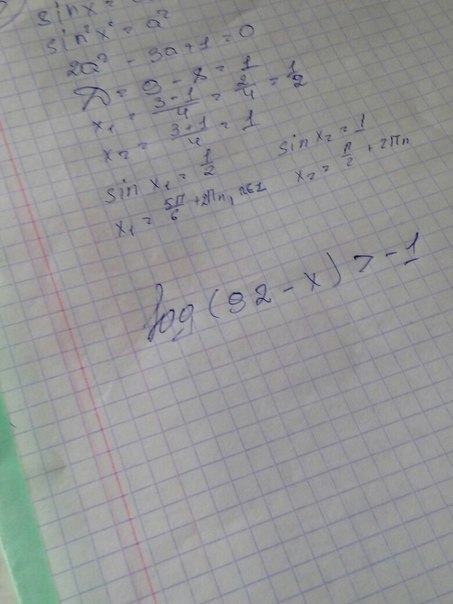 sinx =
sin²x = a²
2a² - 3a + 1 = 0
D = 9 - 8 = 1
x₁ = (3-1)/4 = 2/4 = 1/2
x₂ = (3+1)/4 = 1
sin x₁ = 1/2
x₁ = 5π/6 + 2πn, n∈Z
sin x₂ = 1
x₂ = π/2 + 2πn
log(92-x) > -1